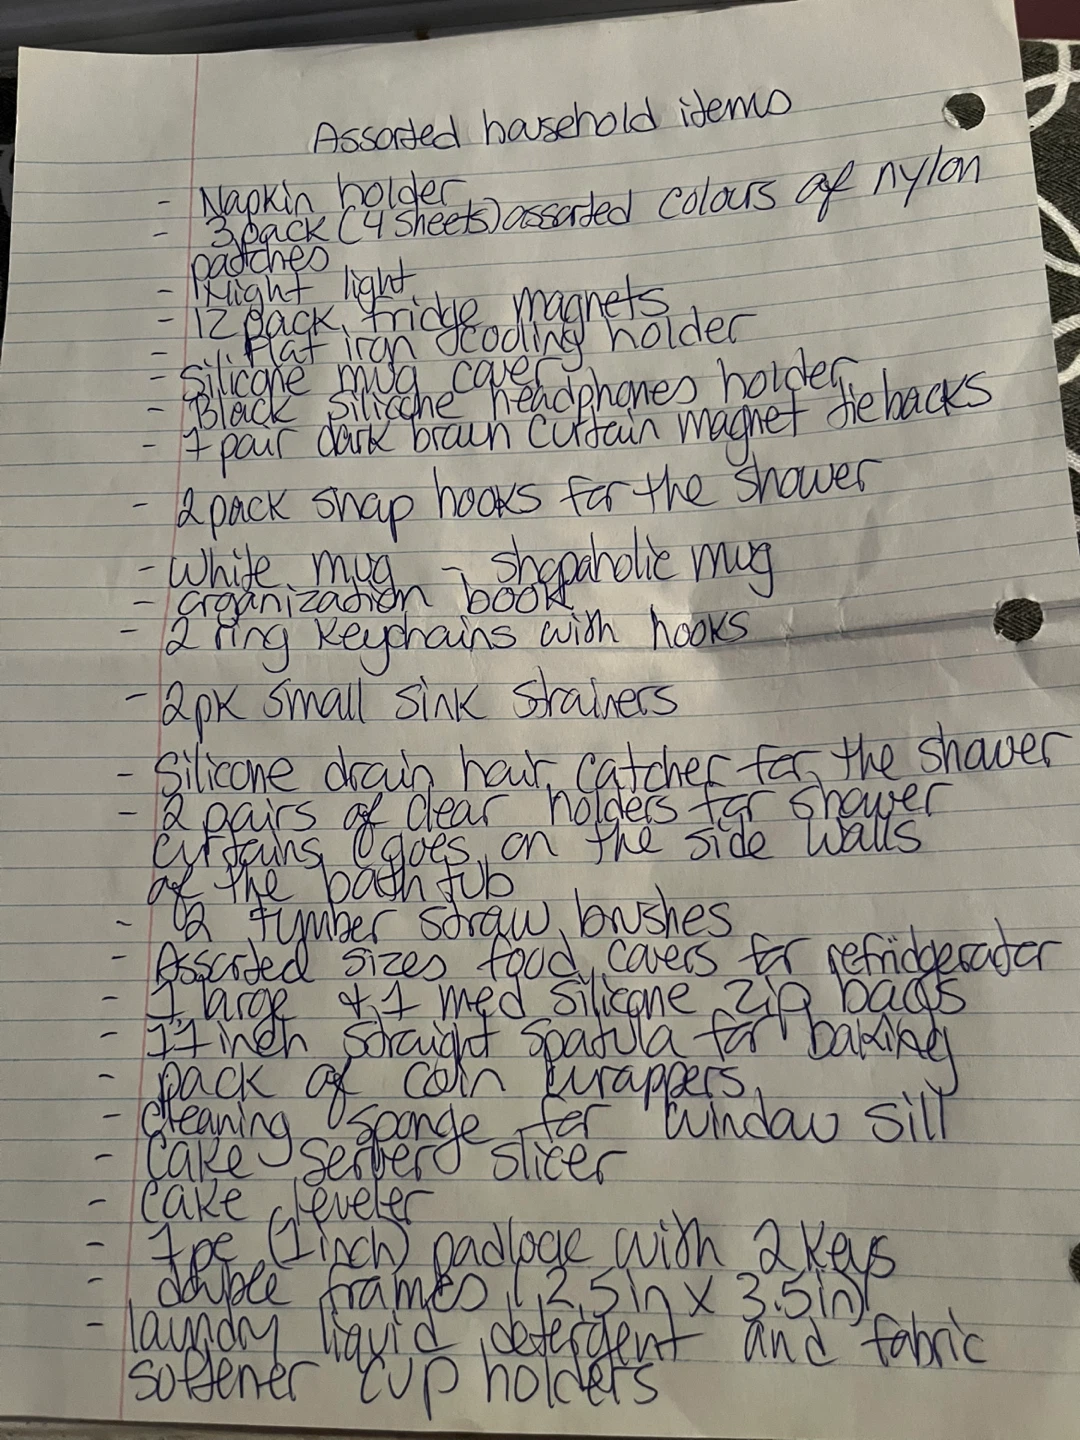 Assorted household items
- Napkin holder
- 3pack (4 sheets) assorted colours of nylon
patches
- Night light
- 12 pack fridge magnets
- Flat iron cooling holder
- Silicone mug cover
- Black silicone headphones holder
- 1 pair dark brown curtain magnet tiebacks
- 2 pack snap hooks for the shower
- White mug - shopaholic mug
- organization book
- 2 ring keychains with hooks
- 2pk small sink strainers
- Silicone drain hair catcher for the shower
- 2 pairs of clear holders for shower
curtains (goes on the side walls
of the bath tub
- 2 tumber straw brushes
- Assorted sizes food covers for refridgerator
- 1 large & 1 med silicone zip bags
- 11 inch straight spatula for baking
- pack of coin wrappers
- cleaning sponge for window sill
- cake server slicer
- cake leveler
- 1pc (1 inch) padlock with 2 keys
- double frames (2.5in x 3.5in)
- laundry liquid detergent and fabric
softener cup holders